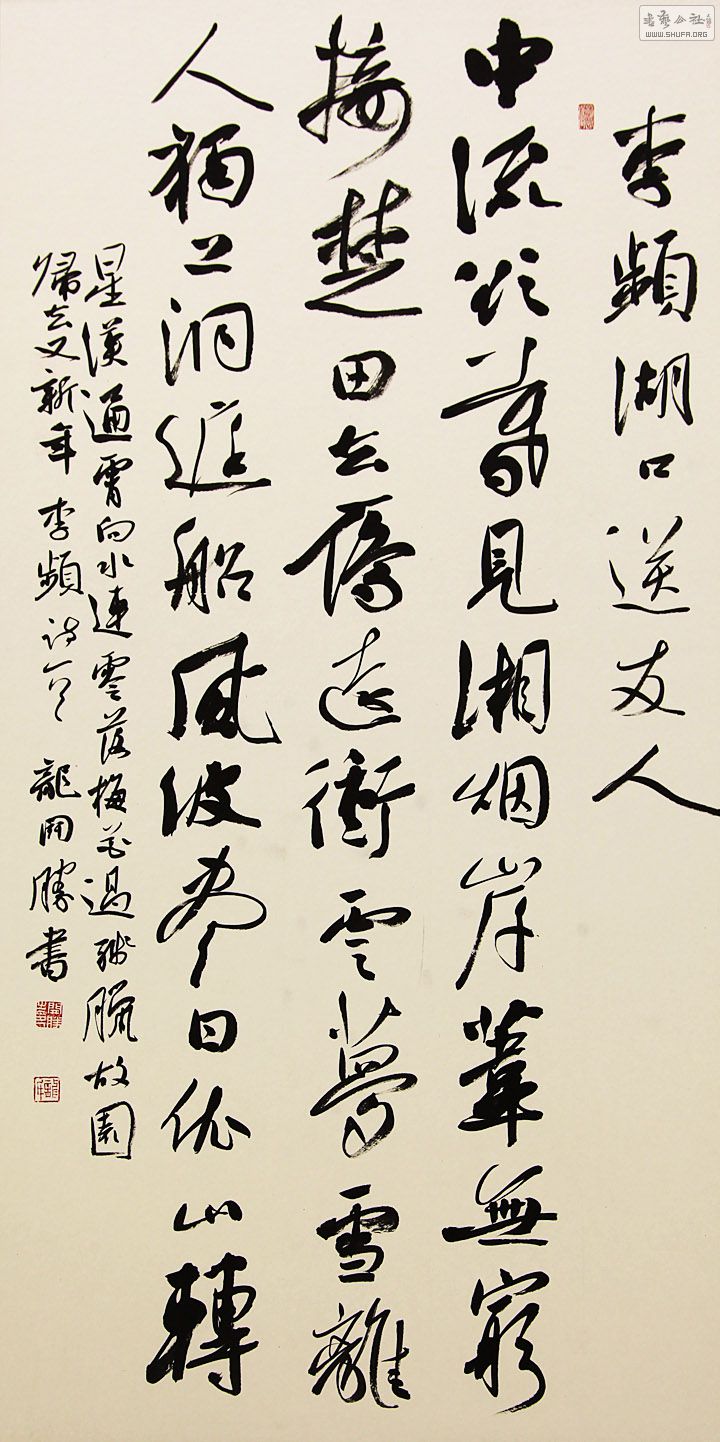 李頻湖口送友人
中流欲暮見湘烟岸葦無窮
接楚田去鴈遠衝雲夢雪離
人獨上洞庭船風波尽日依山轉
星漢通霄向水連零落梅花過殘臘故園
歸去又新年 李頻詩一首 龍開勝書
書藝公社
WWW.SHUFA.ORG